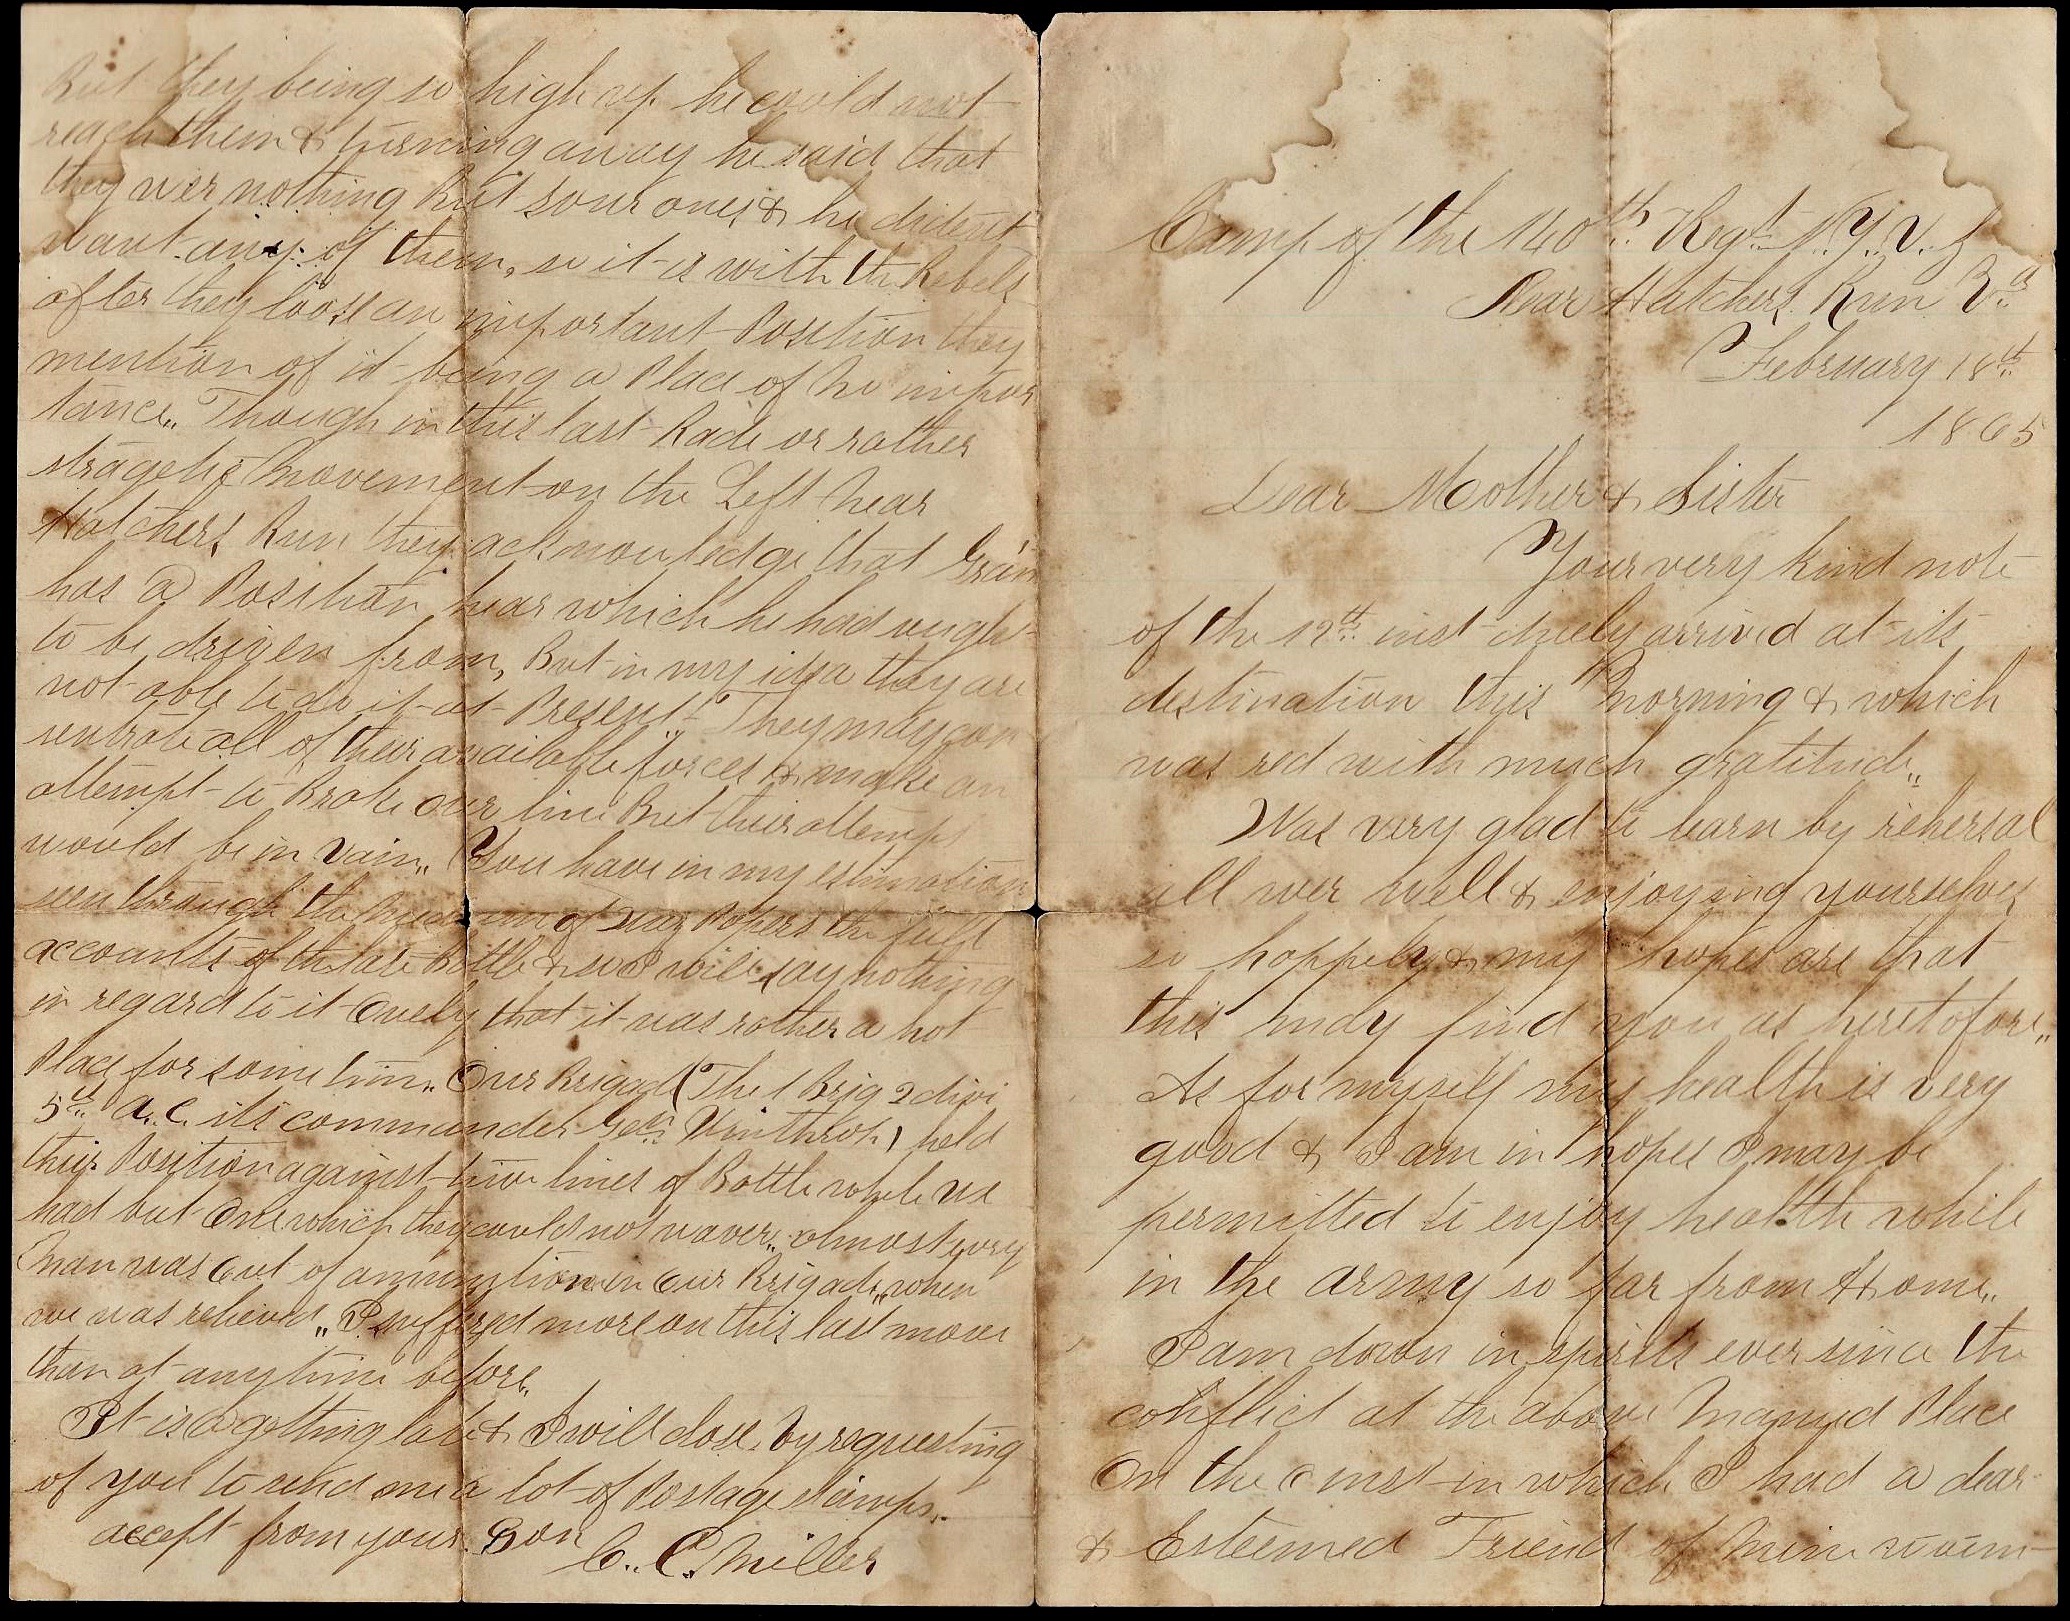 Camp of the 140th Regt N.Y.V.
Near Hatchers Run Va
February 18th
1865
Dear Mother & Sister
Your very kind note
of the 12th inst duely arrived at its
destination this Morning & which
was red with much gratitude"
Was very glad to learn by rehersal
all wer well & enjoying yourselves
so happely & my hopes are that
this may find you as heretofore"
As for myself my health is very
good & I am in hopes I may be
permitted to enjoy health while
in the army so far from Home"
I am down in spirits ever since the
conflict at the above Named Place
On the 6 inst in which I had a dear
& Esteemed Friend of mine
But they being so high up he could not
reach them & turning away he said that
they wer nothing But sour ones & he dident
want any of them, so it is with the Rebels
after they loose an important Position they
mention of it being a Place of no impor
tance" Though in this last Rade or rather
stragetic Movement on the Left near
Hatchers Run they acknowledge that Grant
has a Position near which he had ought
to be driven from, But in my idea they are
not able to do it at Present" They may con
sentrate all of their available forces & make an
attempt to Brake our line But their attempt
would be in vain" You have in my estimation
seen through the Medium of Papers the full
accounts of the late Battle & so I will say nothing
in regard to it Onely that it was rather a hot
Place for some time" Our Brigade (The 1 Brig 2 divi
5th A.C. its commander Gen Winthrop) held
their Position against two lines of Battle while we
had but One which they could not waver" almost every
Man was Out of amunition in Our Brigade" when
we was relieved" I suffered more on this last move
than at anytime before"
It is a getting late & I will close by requesting
of you to send me a lot of Postage stamps"
accept from your Son
C. C. Miller